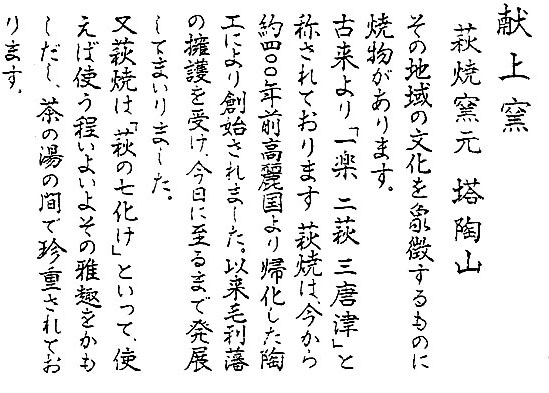 献上窯
萩焼窯元 塔陶山
その地域の文化を象徴するものに
焼物があります。
古来より「一楽 二萩 三唐津」と
称されております 萩焼は、今から
約四〇〇年前高麗国より帰化した陶
工により創始されました。以来毛利藩
の擁護を受け、今日に至るまで発展
してまいりました。
又萩焼は「萩の七化け」といって、使
えば使う程いよいよその雅趣をかも
しだし、茶の湯の間で珍重されてお
ります。